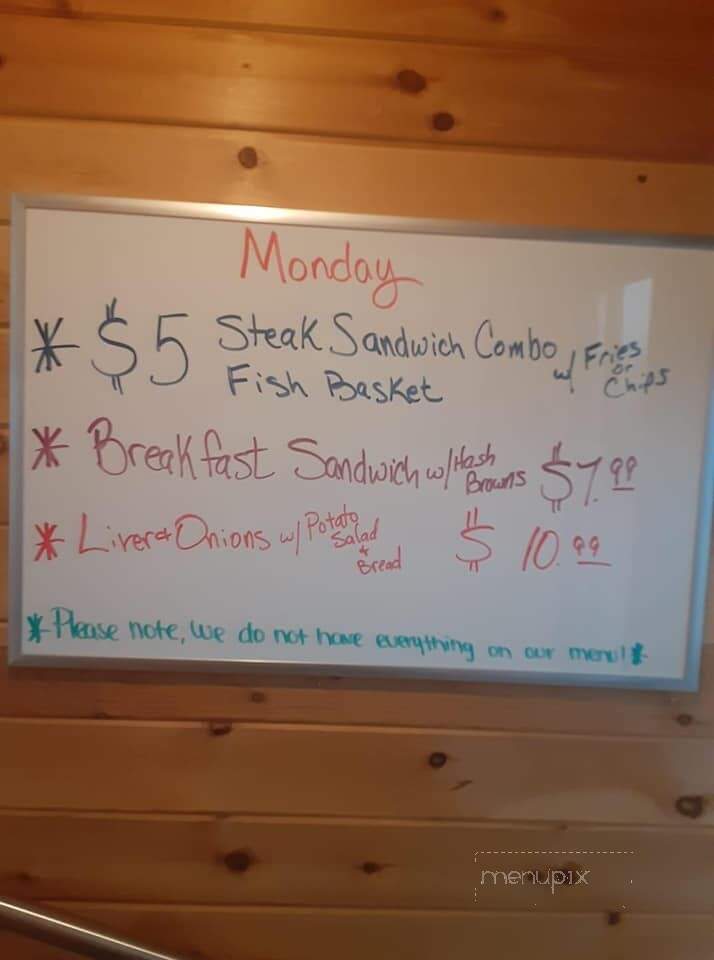 Monday
* $5 Steak Sandwich Combo w/ Fries or Chips
Fish Basket
* Breakfast Sandwich w/ Hash Browns $7.99
* Liver & Onions w/ Potato Salad & Bread $10.99
*Please note, we do not have everything on our menu!*
menupix